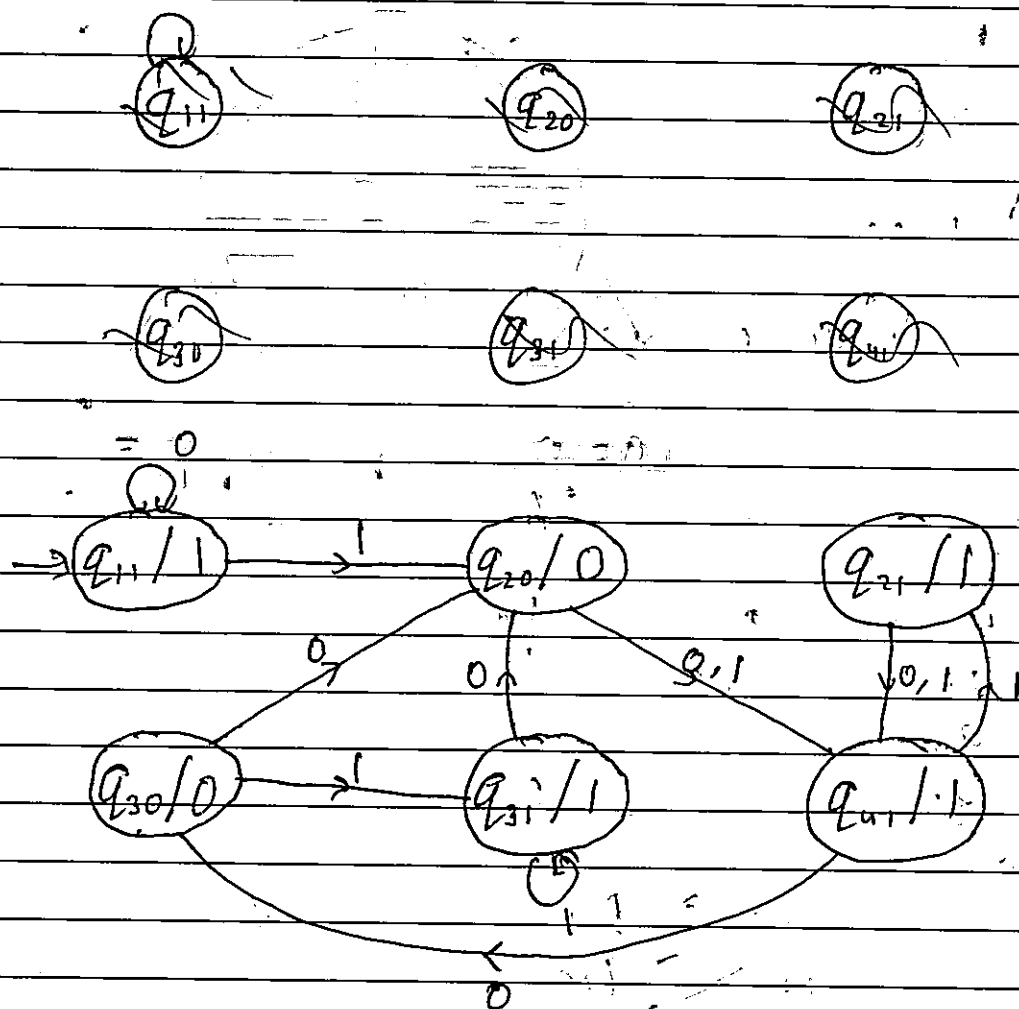 q11 q20 q21
q30 q31 q41
= 0
q11 / 1 1 q20 / 0 q21 / 1
0 0 0, 1 0, 1 1
q30 / 0 1 q31 / 1 q41 / 1
1
0